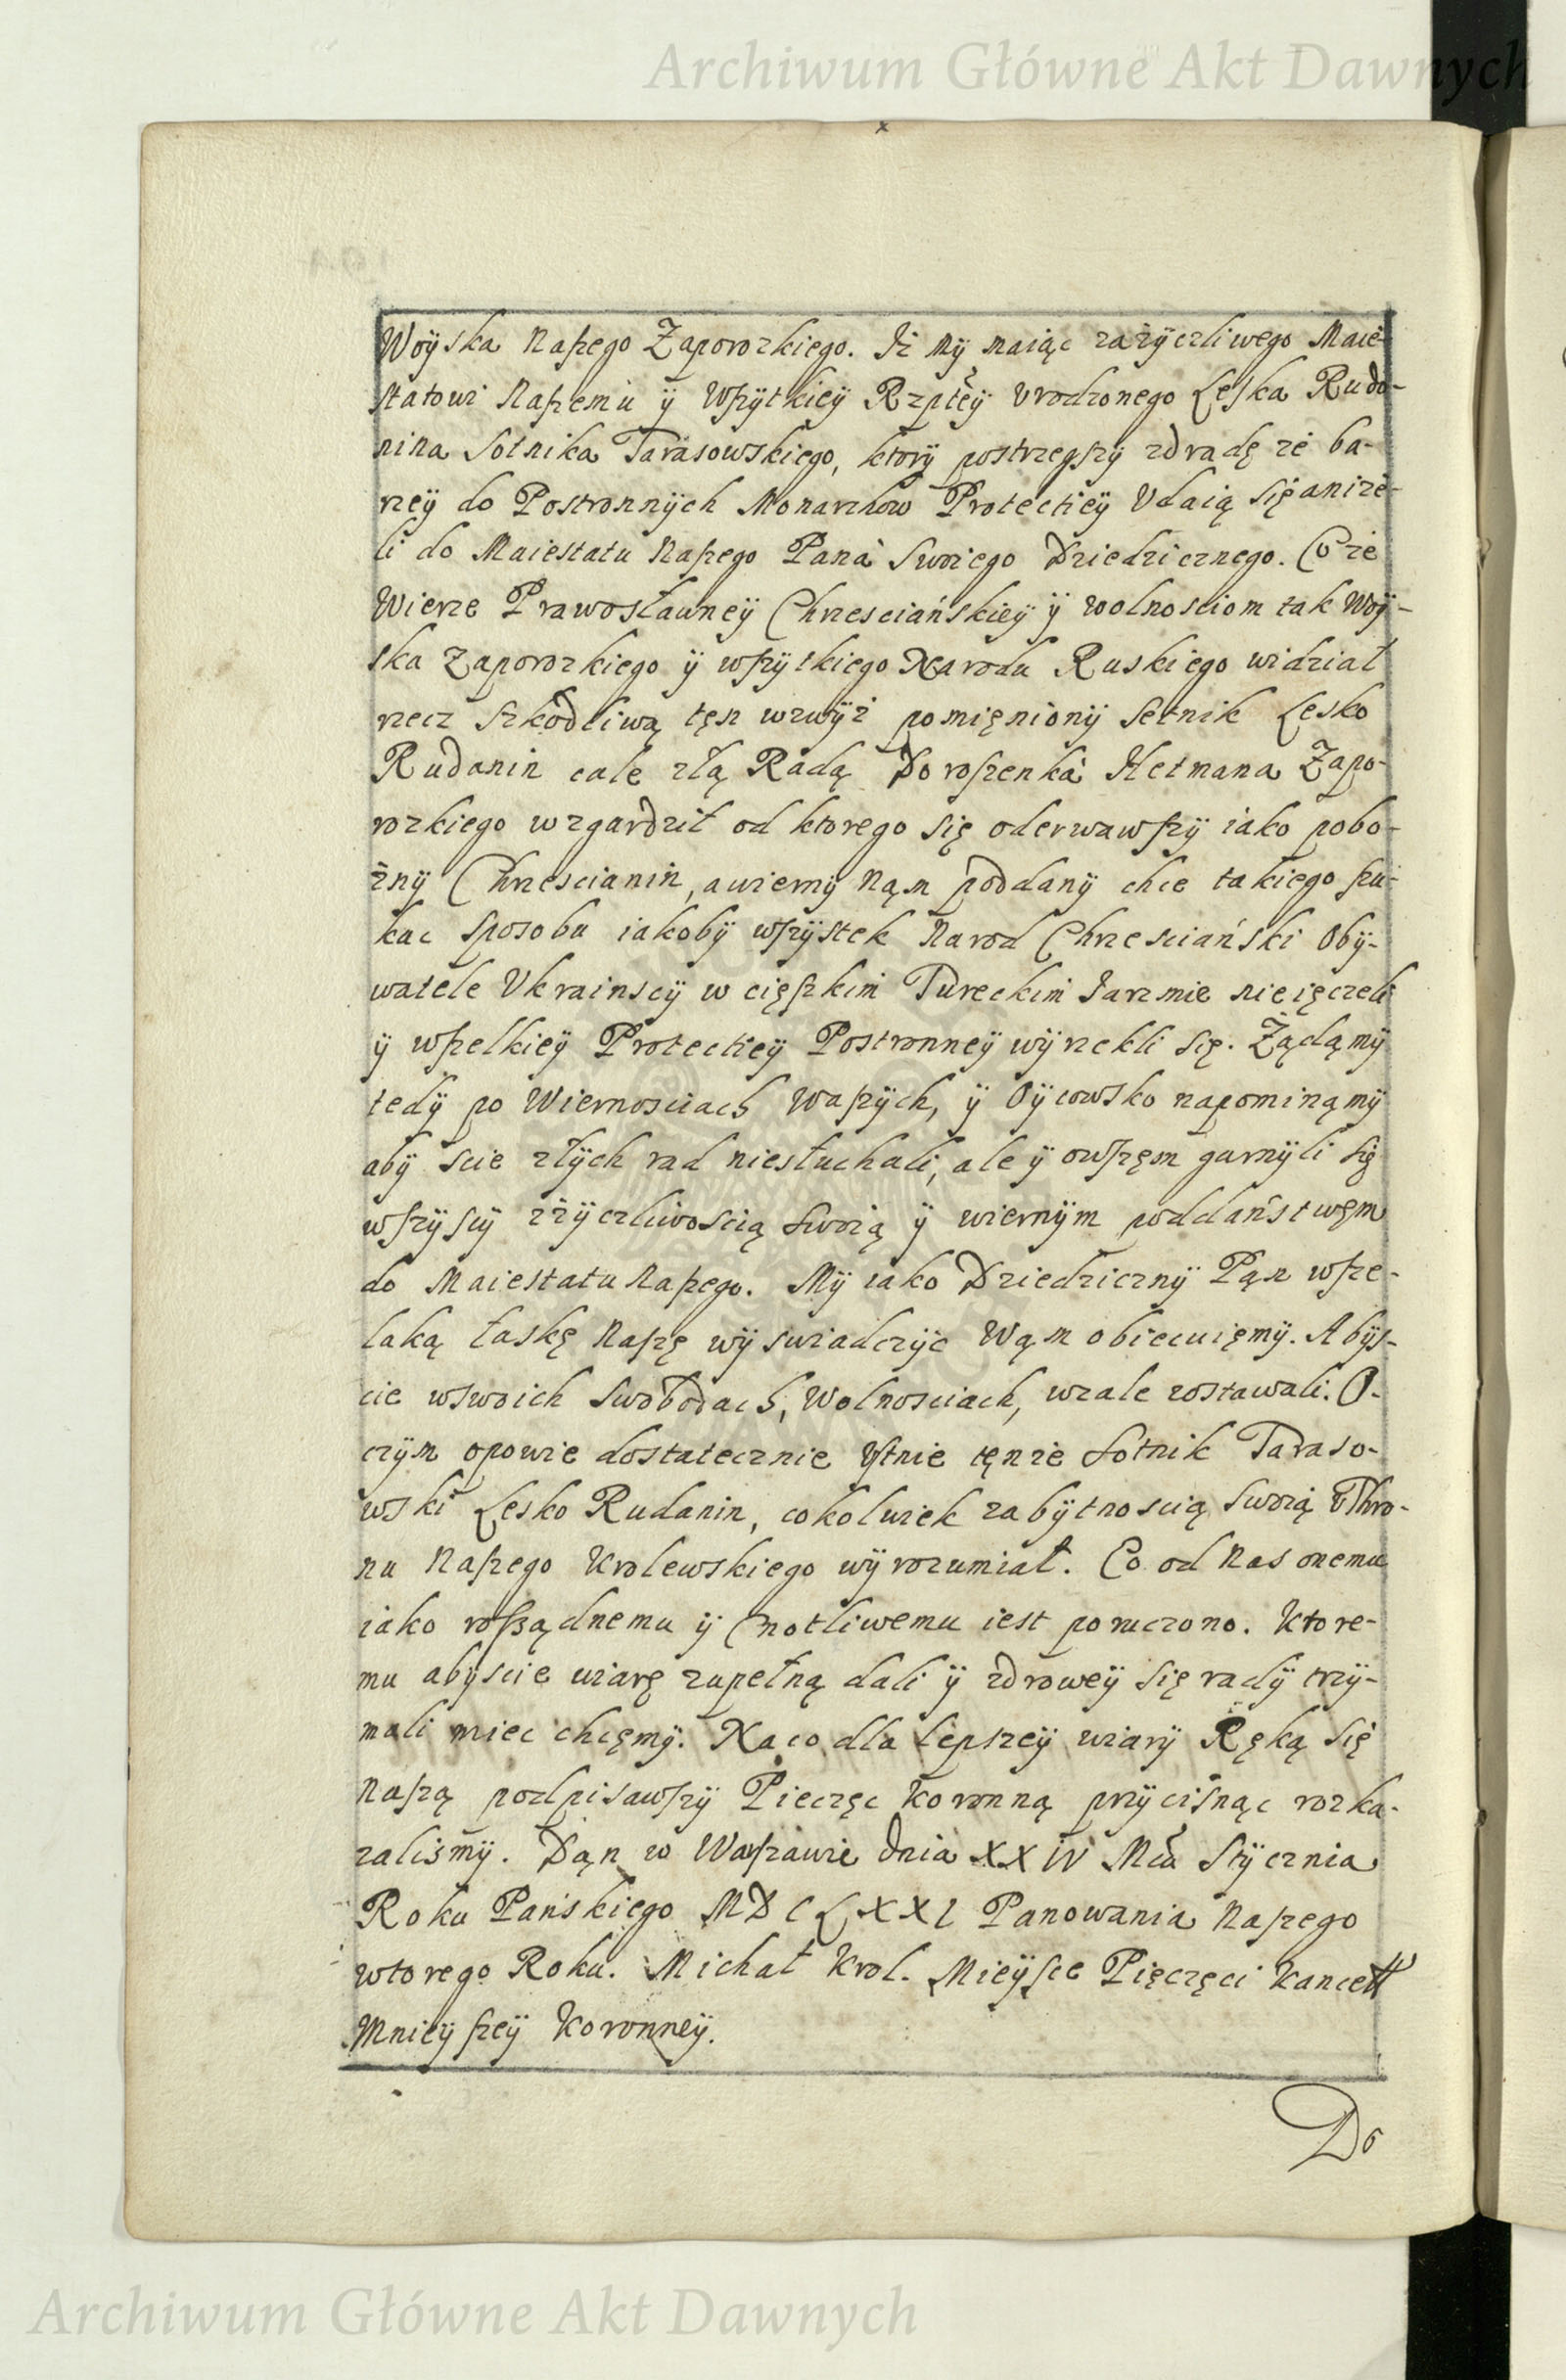 Archiwum Główne Akt Dawnych
Woÿska Naszego Zaporozkiego. Iż Mÿ maiąc zażÿczliwego Maie-
statowi Naszemu ÿ Wszÿtkieÿ Rzplteÿ Vrodzonego Leska Rudo-
nina Sotnika Tarasowskiego, ktorÿ postrzegszÿ zdradę że ba-
rzeÿ do Postronnÿch Monarchow Protectieÿ Vdaią się aniże-
li do Maiestatu Naszego Pana Swoiego Dziedzicznego. Co że
Wierze Prawosławneÿ Chrzesciańskieÿ ÿ wolnosciom tak Woÿ-
ska Zaporozkiego ÿ wszÿtkiego Narodu Ruskiego widział
rzecz szkodliwą tęn wzwÿż pomięnionÿ Setnik Lesko
Rudanin cale złą Radą Doroszenka Hetmana Zapo-
rozkiego wzgardził od ktorego się oderwawszÿ iako pobo-
żnÿ Chrzescianin, a wiernÿ Nąm poddanÿ chce takiego szu-
kac sposobu iakobÿ wszÿstek Narod Chrzesciański Obÿ-
watele Vkrainscÿ w cięszkim Tureckim Iarzmie nieięczeli
ÿ wszelkieÿ Protectieÿ Postronneÿ wÿrzekli się. Żądąmÿ
tedÿ po Wiernosciach Waszÿch, ÿ Oÿcowsko napominąmÿ
abÿ scie złÿch rad niesłuchali, ale ÿ owszęm garnÿli się
wszÿscÿ zżÿczliwoscią swoią ÿ wiernÿm poddaństwęm
do Maiestatu Naszego. Mÿ iako Dziedzicznÿ Pąn wsze-
laką łaskę Naszę wÿswiadczÿc Wąm obiecuięmÿ. Abÿs-
cie wswoich Swobodach, Wolnosciach, wcale zostawali. O-
czÿm opowie dostatecznie Vstnie tęnże Sotnik Taraso-
wski Lesko Rudanin, cokolwiek zabÿtnoscią swoią v Thro-
nu Naszego Krolewskiego wÿrozumiał. Co od Nas onemu
iako rossądnemu ÿ Cnotliwemu iest poruczono. Ktore-
mu abÿscie wiarę zupełną dali ÿ zdroweÿ się radÿ trzÿ-
mali miec chcęmÿ. Na co dla lepszeÿ wiarÿ Ręką się
Naszą podpisawszÿ Pieczęc Koronną przÿcisnąc rozka-
zalismÿ. Dąn w Waszawie dnia XXIV Mca Stÿcznia
Roku Pańskiego MDCLXXI Panowania Naszego
wtorego Roku. Michał Krol. Mieÿsce Pięczęci Kancell
Mnieÿszeÿ Koronneÿ.
Do
Archiwum Główne Akt Dawnych